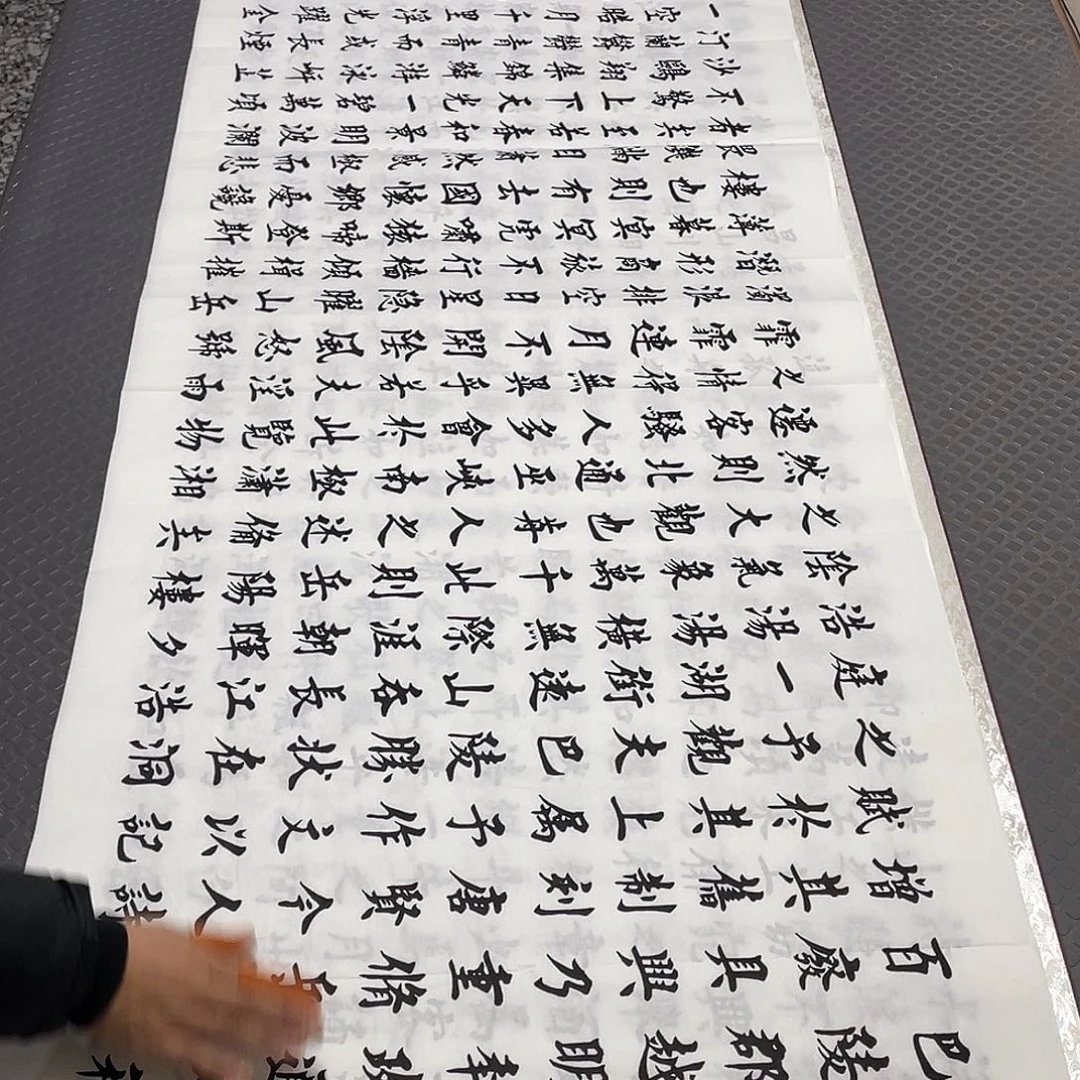 巴陵郡越明年政通和
百廢具興乃重脩岳
增其舊制刻唐賢今人詩
賦於其上屬予作文以記
之予觀夫巴陵勝狀在洞
庭一湖銜遠山吞長江浩
浩湯湯橫無際涯朝暉夕
陰氣象萬千此則岳陽樓
之大觀也前人之述偹矣
然則北通巫峽南極瀟湘
遷客騷人多會於此覽物
之情得無異乎若夫淫雨
霏霏連月不開陰風怒號
濁浪排空日星隐曜山岳
潛形商旅不行檣傾楫摧
薄暮冥冥虎嘯猿啼登斯
樓也則有去國懷鄉憂讒
畏譏滿目蕭然感極而悲
者矣至若春和景明波瀾
不驚上下天光一碧萬頃
沙鷗翔集錦鱗游泳岸芷
汀蘭鬱鬱青青而或長煙
一空皓月千里浮光躍金